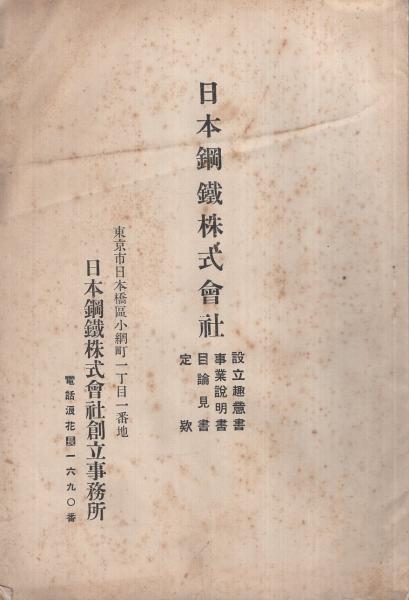 日本鋼鐵株式會社
設立趣意書
事業說明書
目論見書
定款
東京市日本橋區小網町一丁目一番地
日本鋼鐵株式會社創立事務所
電話浪花園一六九〇番